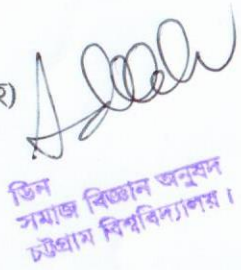 ডিন
সমাজ বিজ্ঞান অনুষদ
চট্টগ্রাম বিশ্ববিদ্যালয়।